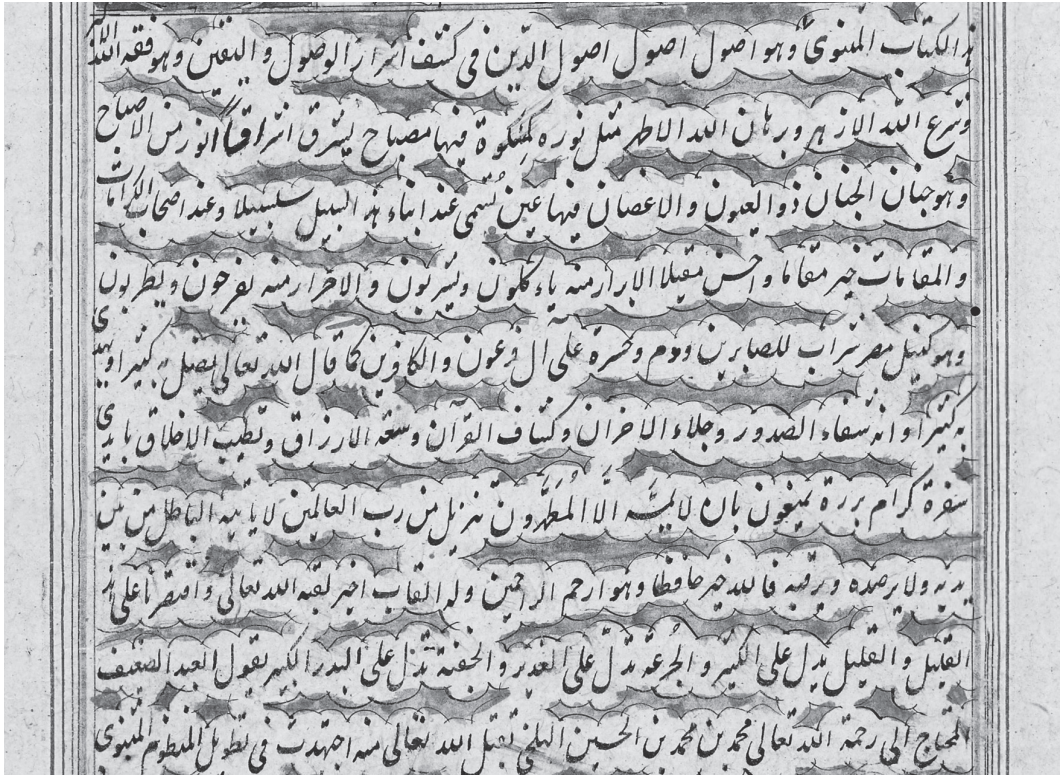 هذا الكتاب المثنوى وهو اصول اصول اصول الدين فى كشف اسرار الوصول واليقين وهو فقه الله الا
وشرع الله الازهر وبرهان الله الاظهر مثل نوره كمشكوة فيها مصباح يشرق اشراقا انور من الاصباح
وهو جنان الجنان ذو العيون والاغصان فيها عين تسمى عند ابناء هذا السبيل سلسبيلا وعند اصحاب الكرامات
والمقامات خير مقاما واحسن مقيلا الابرار منه ياءكلون ويشربون والاحرار منه يفرحون ويطربون
وهو كنيل مصر شراب للصابرين ودم وحسرة على ال فرعون والكافرين كما قال الله تعالى يضل به كثيرا ويهدى
به كثيرا وانه شفاء الصدور وجلاء الاحزان وكشاف القرآن وسعة الارزاق وتطيب الاخلاق بايدى
سفرة كرام بررة يمنعون بان لا يمسّه الّا المُطَهَّرُون تنزيل من رب العالمين لا ياتيه الباطل من بين
يديه ولا يرصده ويرقبه فالله خير حافظا وهو ارحم الراحمين وله القاب اخر لقبه الله تعالى واقتصرنا على
القليل والقليل يدل على الكثير والجرعة تدلّ على الغدير والحفنة تدل على البيدر الكبير يقول العبد الضعيف
المحتاج الى رحمة الله تعالى محمد بن محمد بن الحسين البلخى تقبل الله تعالى منه اجتهدت فى تطويل المنظوم المثنوى